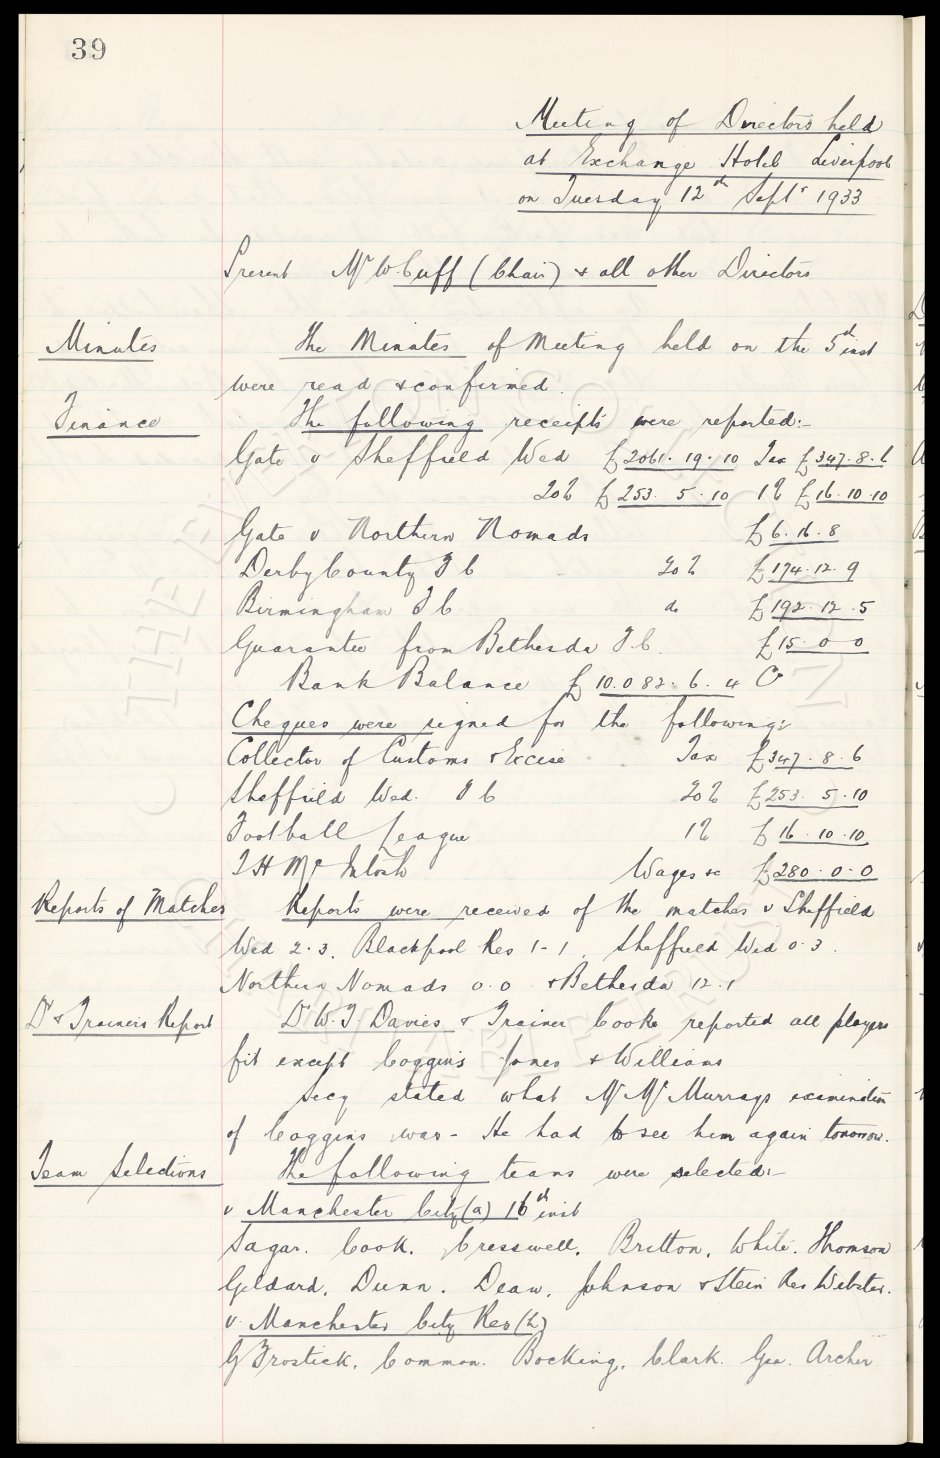 39
Meeting of Directors held
at Exchange Hotel Liverpool
on Tuesday 12th Septr 1933
Present Mr W. Cuff (Chair) & all other Directors
Minutes The Minutes of Meeting held on the 5th inst
were read & confirmed.
Finance The following receipts were reported:-
Gate v Sheffield Wed £2061.19.10 Tax £347.8.6
20% £253.5.10 1% £16.10.10
Gate v Northern Nomads £6.16.8
Derby County F C 20% £174.12.9
Birmingham F C do £192.12.5
Guarantee from Bethesda F.C. £15.0.0
Bank Balance £10.082.6.4 Cr
Cheques were signed for the following:
Collector of Customs & Excise Tax £347.8.6
Sheffield Wed. F C 20% £253.5.10
Football League 1% £16.10.10
T H McIntosh Wages &c £280.0.0
Reports of Matches Reports were received of the matches v Sheffield
Wed 2.3, Blackpool Res 1-1, Sheffield Wed 0.3.
Northern Nomads 0.0 & Bethesda 12.1
Dr & Trainers Report Dr W.F Davies & Trainer Cooke reported all players
fit except Coggins Jones & Williams
Secy stated what Mr McMurrays examination
of Coggins was - He had to see him again tomorrow.
Team Selections The following teams were selected:-
v Manchester City (a) 16th inst
Sagar. Cook. Cresswell. Britton. White. Thomson
Geldard. Dunn. Dean. Johnson & Stein Res Webster.
v. Manchester City Res (h)
G Frostick. Common. Bocking. Clark. Gee. Archer
THE EVERTON COLLECTION
CHARITABLE TRUST